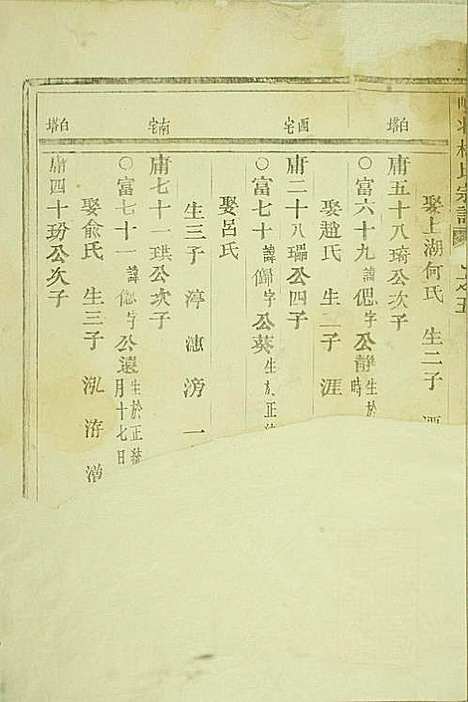 氏宗譜
娶上湖何氏 生二子
白塔
庸五十八琦公次子
○富六十九 諱偲字公靜 生於 時
娶趙氏 生二子 涯
西宅
庸二十八瑞公四子
○富七十 諱歸字公葵 生於正統
娶呂氏
生三子 渟 漶 滂 一
南宅
庸七十一珙公次子
○富七十一 諱偬字公遠 生於正統 月十七日
娶俞氏 生三子 泓 洊 潸
白塔
庸四十玢公次子